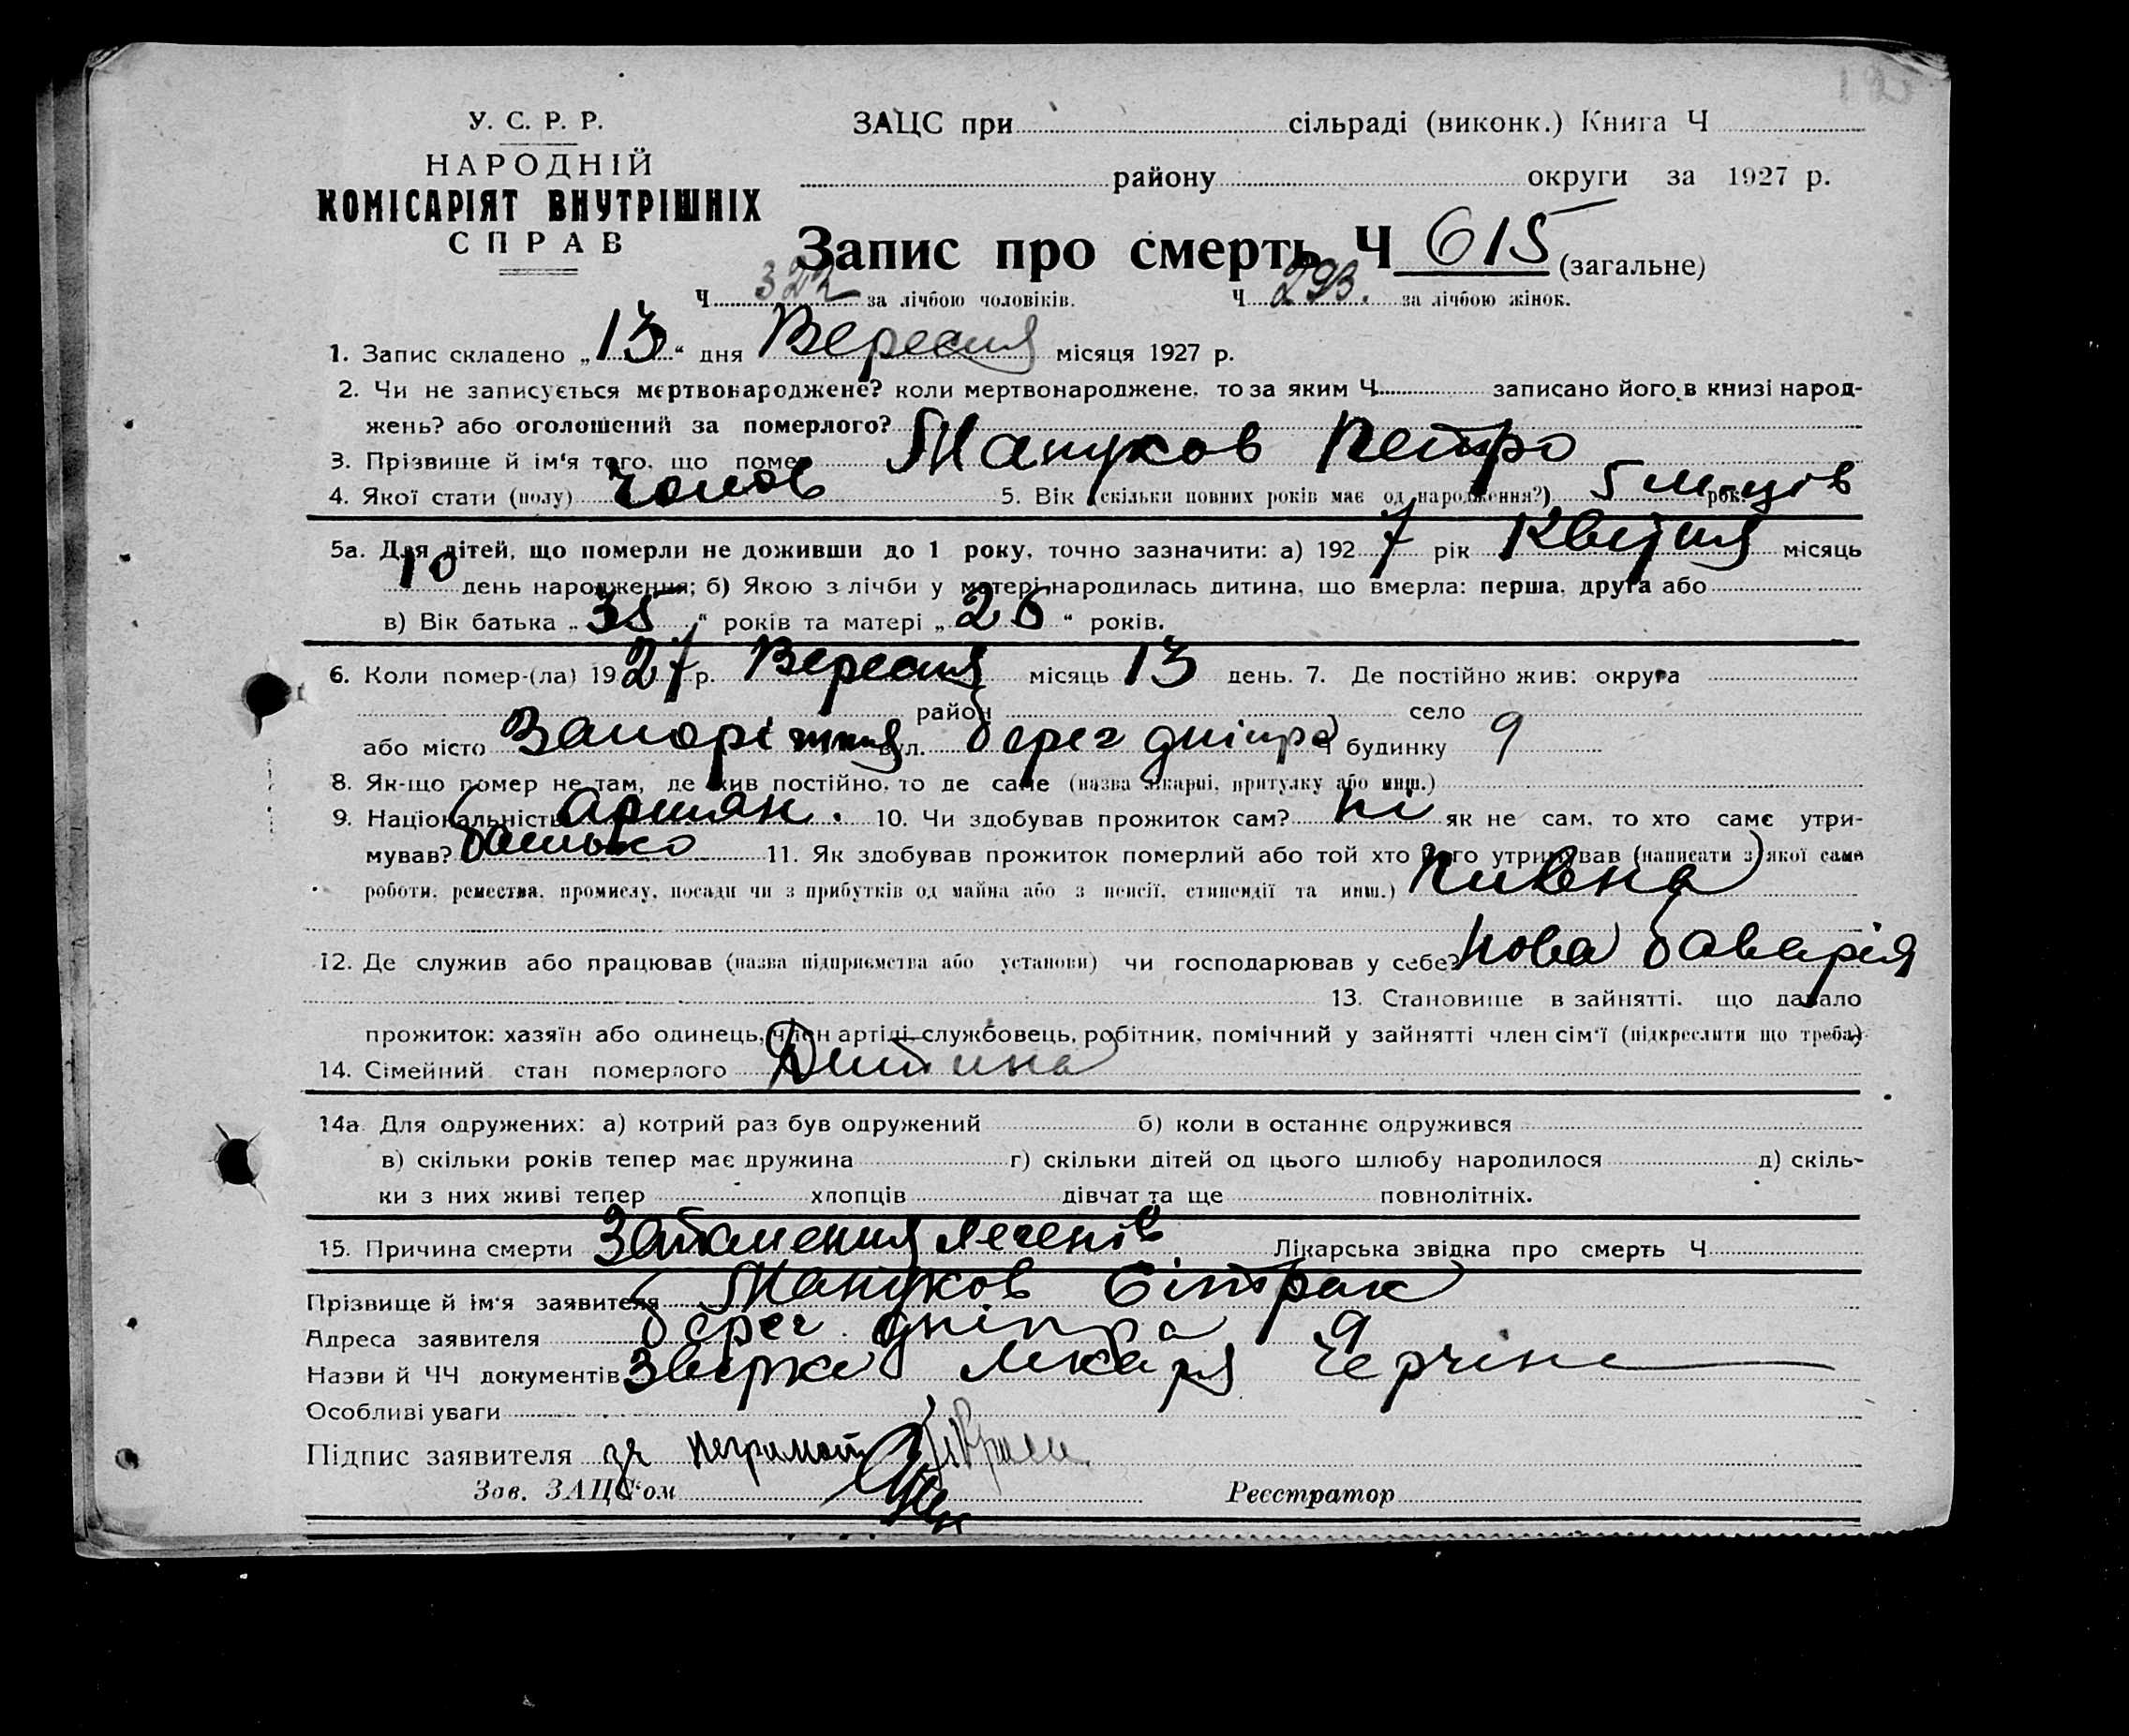 У. С. Р. Р.
НАРОДНІЙ
КОМІСАРІЯТ ВНУТРІШНІХ
СПРАВ
ЗАЦС при сільраді (виконк.) Книга Ч
району округи за 1927 р.
Запис про смерть Ч 615 (загальне)
Ч 322 за лічбою чоловіків. Ч 293. за лічбою жінок.
1. Запис складено „13“ дня Вересня місяця 1927 р.
2. Чи не записується мертвонароджене? коли мертвонароджене, то за яким Ч записано його в книзі народ-
жень? або оголошений за померлого?
3. Прізвище й ім'я того, що помер Мануков Петро
4. Якої стати (полу) чолов 5. Вік (скільки повних років має од народження?) 5 м-ців рок.
5а. Для дітей, що померли не доживши до 1 року, точно зазначити: а) 1927 рік Квітня місяць
10 день народження; б) Якою з лічби у матері народилась дитина, що вмерла: перша, друга або
в) Вік батька „35“ років та матері „26“ років.
6. Коли помер-(ла) 1927 р. Вересня місяць 13 день. 7. Де постійно жив: округа
район село
або місто Запоріжжя вул. берег дніпра Ч будинку 9
8. Як-що помер не там, де жив постійно, то де саме (назва лікарні, притулку або инш.)
9. Національність Армян. 10. Чи здобував прожиток сам? ні як не сам, то хто саме утри-
мував? батько 11. Як здобував прожиток померлий або той хто його утримував (написати з якої саме
роботи, ремества, промислу, посади чи з прибутків од майна або з пенсії, стипендії та инш.) Пивна
12. Де служив або працював (назва підприємства або установи) чи господарював у себе? Нова баварія
13. Становище в зайнятті, що давало
прожиток: хазяїн або одинець, член артілі, службовець, робітник, помічний у зайнятті член сім'ї (підкреслити що треба)
14. Сімейний стан померлого Дитина
14а. Для одружених: а) котрий раз був одружений б) коли в останнє одружився
в) скільки років тепер має дружина г) скільки дітей од цього шлюбу народилося д) скіль-
ки з них живі тепер хлопців дівчат та ще повнолітніх.
15. Причина смерти Запалення легенів Лікарська звідка про смерть Ч
Прізвище й ім'я заявителя Мануков Сітрак
Адреса заявителя берег дніпра 9
Назви й ЧЧ документів лікаря
Особливі уваги
Підпис заявителя за неграмотн
Зав. ЗАЦС'ом Реєстратор